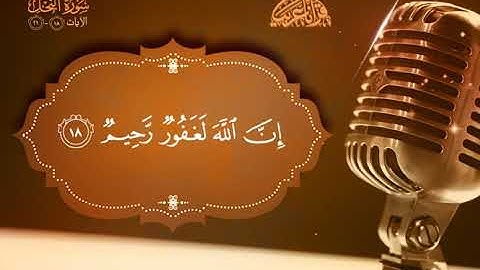 سُورَةُ النَّحْلِ
الآيات ١٨ - ٢٩
إِنَّ ٱللَّهَ لَغَفُورٌ رَّحِيمٌ ١٨